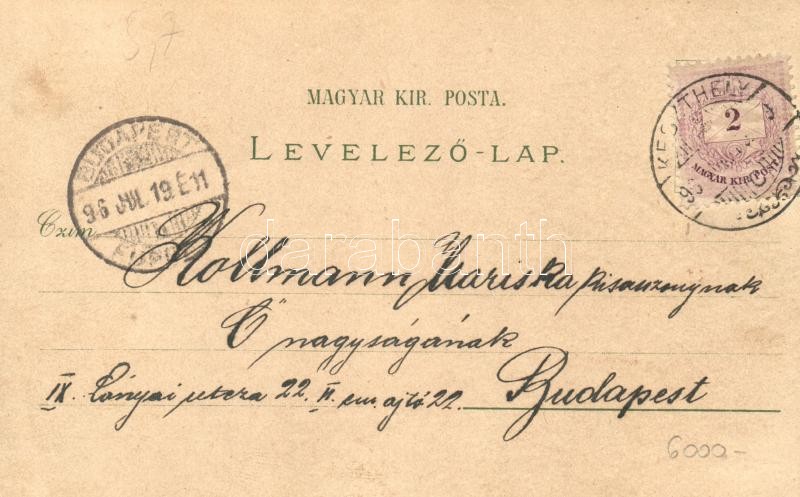 5,7
MAGYAR KIR. POSTA.
LEVELEZŐ-LAP.
KESZTHELY
2
MAGYAR KIR. POSTA
BUDAPEST
96 JUL. 19. É 11
Czim
darabanth
Kollmann Mariska kisasszonynak
Ő nagyságának
IX. Lónyai utcza 22. II. em. ajtó 22. Budapest
6000-